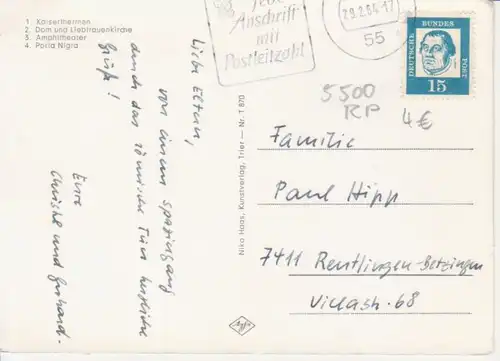 1 Kaiserthermen
2. Dom und Liebfrauenkirche
3. Amphitheater
4. Porta Nigra
Jede
Anschrift
mit
Postleitzahl
29.2.64-17
55
DEUTSCHE
BUNDES
POST
15
5500
RP
4€
Liebe Eltern,
von einem Spaziergang
durch das römische Trier herzliche
Grüße!
Eure
Christel und Gerhard.
Nika Haas, Kunstverlag, Trier - Nr. T 870
Familie
Paul Hipp
7411 Reutlingen-Betzingen
Villastr. 68